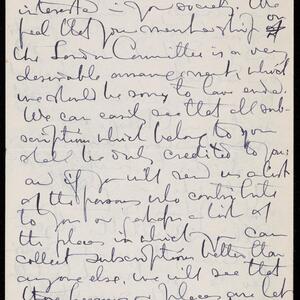 interested in your society. We
feel that your membership of
the London Committee is a very
desirable arrangement, which
we should be sorry to have ended.
We can easily see that all sub-
scriptions which belong to your
shall be only credited to you:
and if you will send us a list
of the persons who contribute
to you or perhaps a list of
the places in which you can
collect subscriptions better than
anyone else, we will see that
those persons or places are let